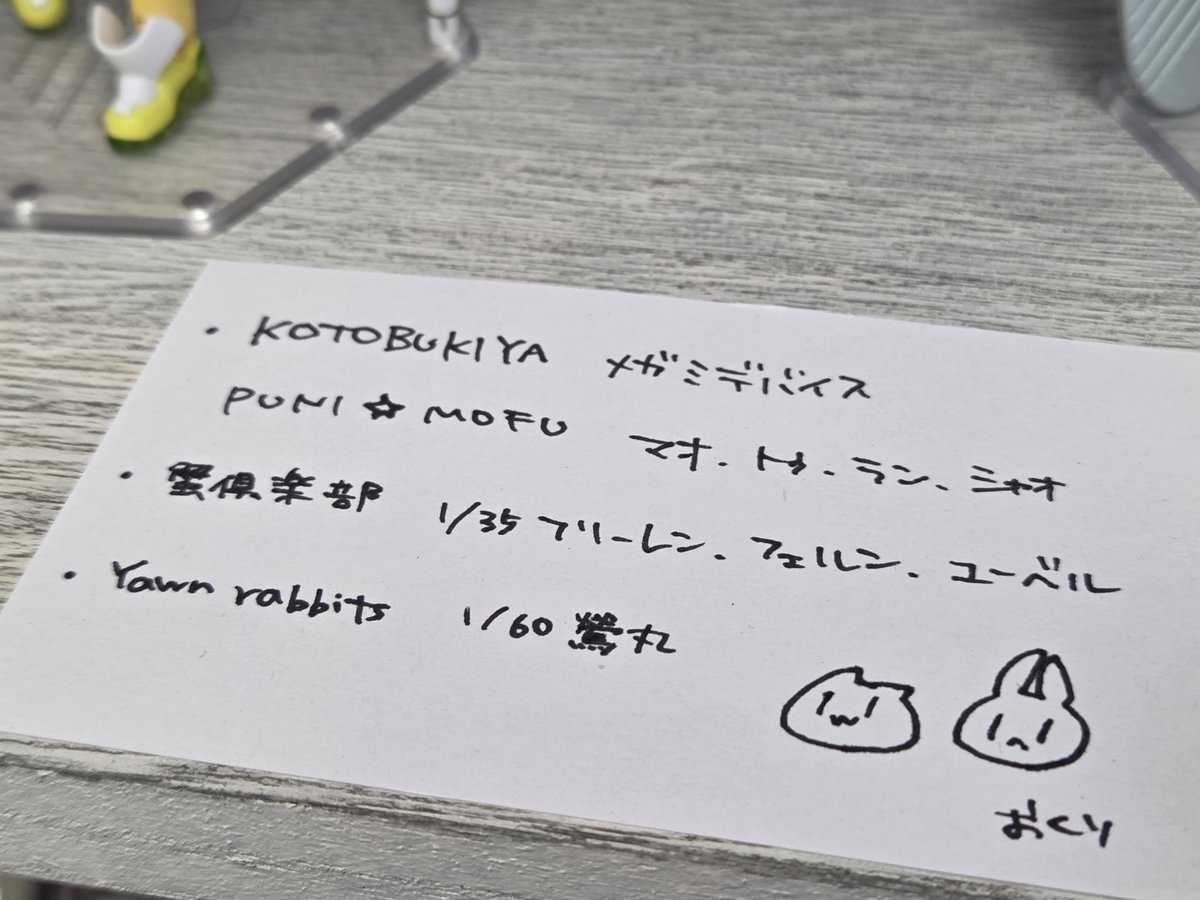 ・KOTOBUKIYA メガミデバイス
PUNI☆MOFU マオ、トゥ、ラン、シャオ
・蟹倶楽部 1/35 フリーレン、フェルン、ユーベル
・Yawn rabbits 1/60 鶯丸
おくり